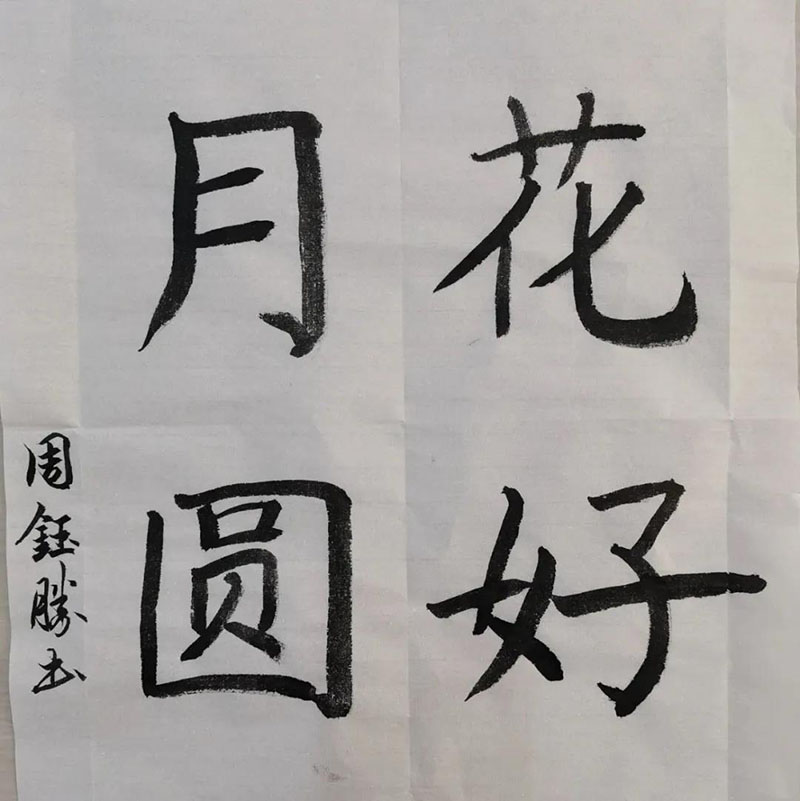 花好
月圆
周钰勝书